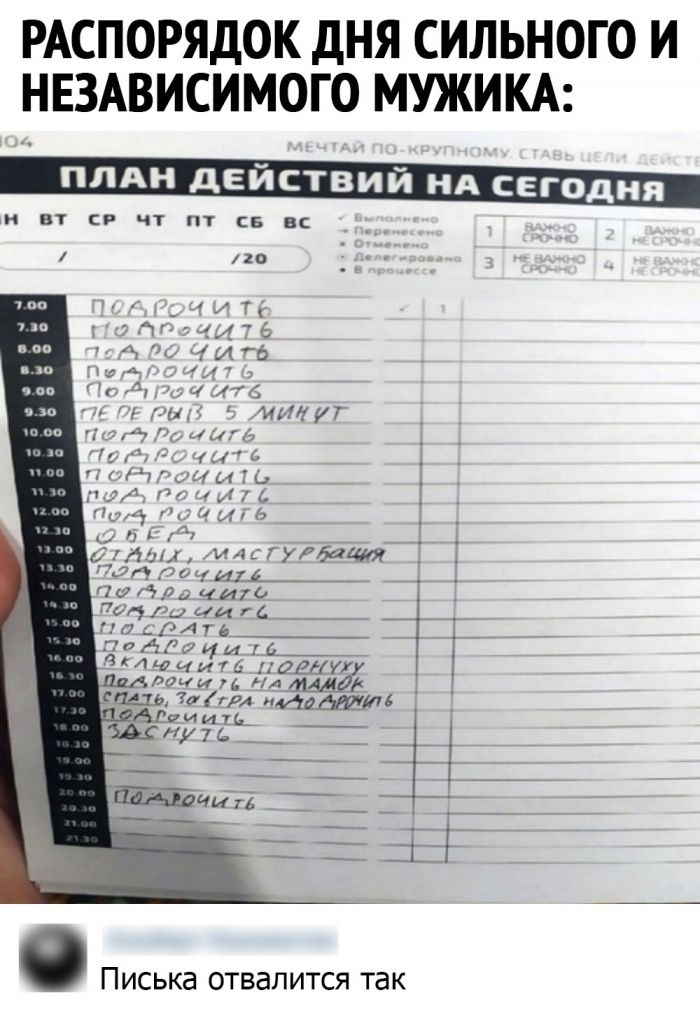 РАСПОРЯДОК ДНЯ СИЛЬНОГО И
НЕЗАВИСИМОГО МУЖИКА:
104
МЕЧТАЙ ПО-КРУПНОМУ. СТАВЬ ЦЕЛИ. ДЕЙСТВ
ПЛАН ДЕЙСТВИЙ НА СЕГОДНЯ
Н ВТ СР ЧТ ПТ СБ ВС
/ /20
✓ Выполнено
→ Перенесено
× Отменено
Делегировано
• В процессе
1 ВАЖНО СРОЧНО 2 ВАЖНО НЕ СРОЧН
3 НЕ ВАЖНО СРОЧНО 4 НЕ ВАЖНО НЕ СРОЧН
7.00 ПОДРОЧИТЬ ✓ 1
7.30 ПОДРОЧИТЬ
8.00 ПОДРОЧИТЬ
8.30 ПОДРОЧИТЬ
9.00 ПОДРОЧИТЬ
9.30 ПЕРЕРЫВ 5 МИНУТ
10.00 ПОДРОЧИТЬ
10.30 ПОДРОЧИТЬ
11.00 ПОДРОЧИТЬ
11.30 ПОДРОЧИТЬ
12.00 ПОДРОЧИТЬ
12.30 ОБЕД
13.00 ОТДЫХ, МАСТУРБАЦИЯ
13.30 ПОДРОЧИТЬ
14.00 ПОДРОЧИТЬ
14.30 ПОДРОЧИТЬ
15.00 ПОСРАТЬ
15.30 ПОДРОЧИТЬ
16.00 ВКЛЮЧИТЬ ПОРНУХУ
16.30 ПОДРОЧИТЬ НА МАМОК
17.00 СПАТЬ, ЗАВТРА НАДО ДРОЧИТЬ
17.30 ПОДРОЧИТЬ
18.00 ЗАСНУТЬ
18.30
19.00
19.30
20.00 ПОДРОЧИТЬ
20.30
21.00
21.30
Писька отвалится так